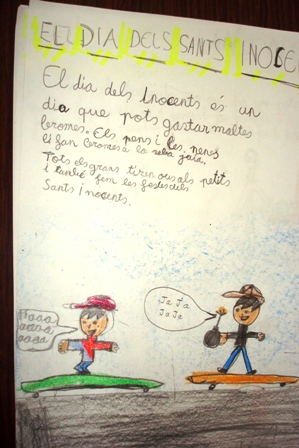 EL DIA DELS SANTS INOCE
El dia dels inocents és un
dia que pots gastar moltes
bromes. Els nens i les nenes
li fan bromes a la seba
Tots els grans tiren ous als petits
i també fem les festes dels
Sants inocents.
Ja Ja
Ja Ja